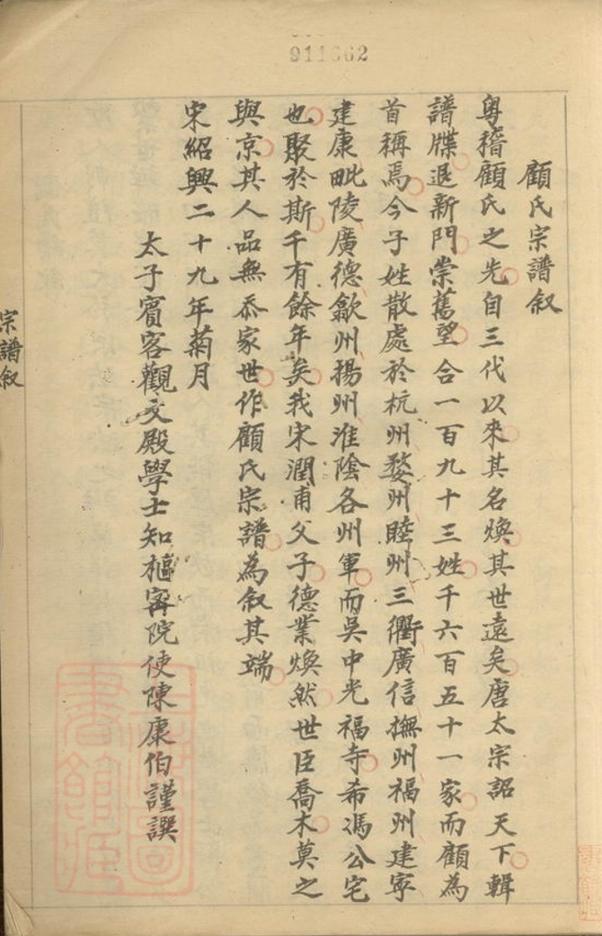 911662
顧氏宗譜叙
粤稽顧氏之先自三代以來其名煥其世遠矣唐太宗詔天下輯
譜牒退新門崇舊望合一百九十三姓千六百五十一家而顧為
首稱焉今子姓散處於杭州婺州睦州三衢廣信撫州福州建寜
建康毗陵廣德歙州揚州淮陰各州軍而吳中光福寺希馮公宅
也聚於斯千有餘年矣我宋潤甫父子德業煥然世臣喬木莫之
與京其人品無忝家世作顧氏宗譜為叙其端
宋紹興二十九年菊月
太子賓客觀文殿學士知樞宻院使陳康伯謹譔
宗譜叙